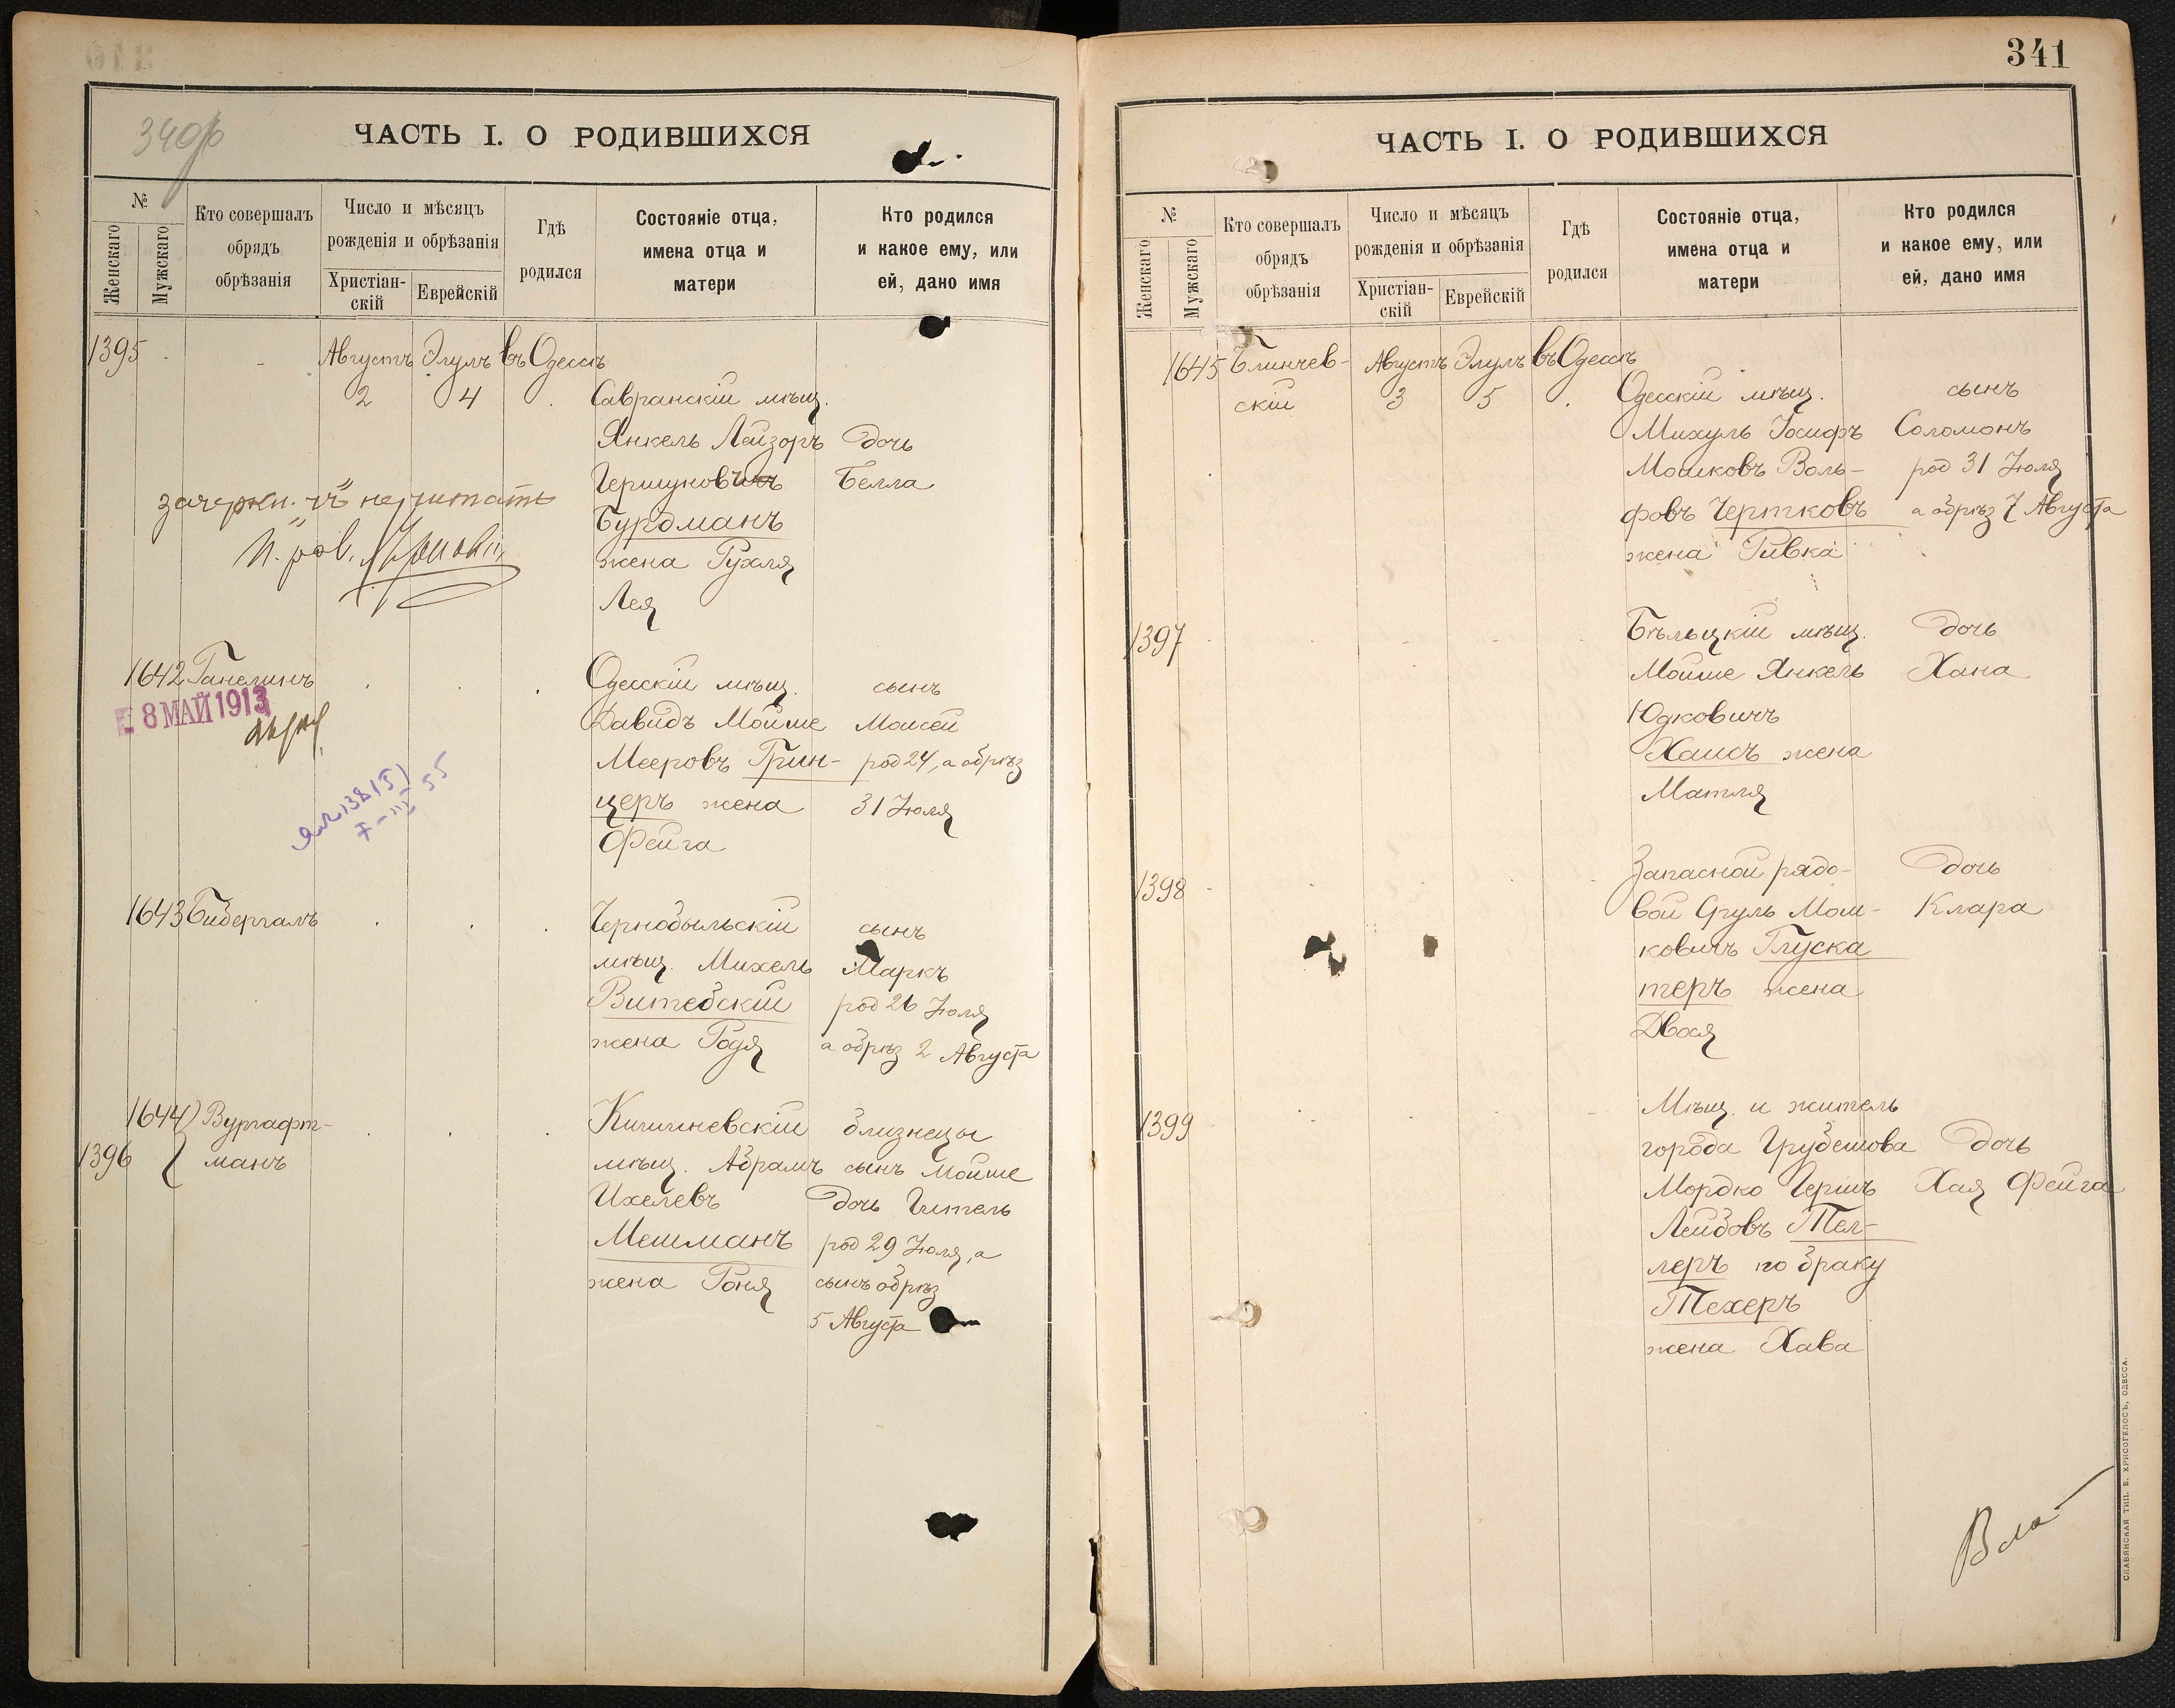 340 об
ЧАСТЬ I. О РОДИВШИХСЯ
№
Женскаго
Мужскаго
Кто совершалъ
обрядъ
обрѣзанія
Число и мѣсяцъ
рожденія и обрѣзанія
Христіан-
скій
Еврейскій
Гдѣ
родился
Состояніе отца,
имена отца и
матери
Кто родился
и какое ему, или
ей, дано имя
1395 - Августъ Элулъ въ Одессѣ
2 4 Савранскій мѣщ.
Янкель Лейзоръ дочь
Гершуковичъ Белла
Бурдманъ
жена Рухля
Лея
зачеркн. "чъ" не читать
И. рав.
1642 Ганелинъ Одесскій мѣщ. сынъ
8 МАЙ 1913
Давидъ Мойше Моисей
Мееровъ Грин- род 24, а обрѣз
церъ жена 31 Іюля
Фейга
1643 Бибергалъ Чернобыльскій сынъ
мѣщ. Михель Маркъ
Витебскій род 26 Іюля
жена Годя а обрѣз 2 Августа
1644 Вургафт- Кишиневскій близнецы
1396 манъ мѣщ. Абрамъ сынъ Мойше
Ихелевъ дочь Гитель
Мешманъ род 29 Іюля, а
жена Роня сынъ обрѣз
5 Августа
341
ЧАСТЬ I. О РОДИВШИХСЯ
№
Женскаго
Мужскаго
Кто совершалъ
обрядъ
обрѣзанія
Число и мѣсяцъ
рожденія и обрѣзанія
Христіан-
скій
Еврейскій
Гдѣ
родился
Состояніе отца,
имена отца и
матери
Кто родился
и какое ему, или
ей, дано имя
1645 Блинчев- Августъ Элулъ въ Одессѣ
скій 3 5 Одесскій мѣщ. сынъ
Михуль Іосифъ Соломонъ
Мошковъ Воль- род 31 Іюля
фовъ Чертковъ а обрѣз 7 Августа
жена Ривка
1397 Бѣльцкій мѣщ. дочь
Мойше Янкель Хана
Юдковичъ
Хаисъ жена
Матля
1398 Запасной рядо- дочь
вой Сруль Мош- Клара
ковичъ Глуска
теръ жена
Двося
1399 Мѣщ. и житель
города Грубешова дочь
Мордко Гершъ Хая Фейга
Лейбовъ Тел-
леръ по браку
Техеръ
жена Хава
СЛАВЯНСКАЯ ТИП. Е. ХРИСОГЕЛОСЪ, ОДЕССА.